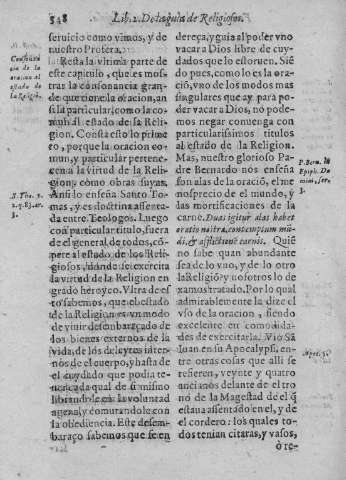 548 Lib. 2. De la guia de Religiosos.
seruicio como vimos, y de
nuestro Profera.
Resta la vltima parte de
este capitulo, que es mos-
trar la consonancia gran-
de que tiene la oracion, an
si la particular, como la co-
mun al estado de la Reli-
gion. Consta esto lo prime
ro, porque la oracion co-
mun, y particular pertene-
cen a la virtud de la Reli-
gion, como obras suyas.
Ansi lo enseña Santo To-
mas, y es doctrina assenta-
da entre Teologos. Luego
con particular titulo, fuera
de el general de todos, cõ-
pete al estado de los Reli-
giosos, siendo su exercicio
la virtud de la Religion en
grado héroyco. Vltra de es-
to sabemos, que el estado
de la Religion es vn modo
de viuir desembaraçado de
los bienes externos de la
vida, de los deleytes inter-
nos de el cuerpo, y hasta de
el cuydado que podia te-
ner cada qual de si mismo
librandole en la voluntad
agena, y comutandole con
la obediencia. Este desem-
baraço sabemos que se en
Consonã
cia de la
oracion al
estado de
la Religiõ.
S. Tho. 2.
2. q. 83. ar.
3.
dereça, y guia al poder vno
vacar a Dios libre de cuy-
dados que lo estoruen. Siẽ
do pues, como lo es la ora-
ciõ, vno de los modos mas
singulares que ay para po-
der vacar a Dios, no pode-
mos negar conuenga con
particularissimos titulos
al estado de la Religion.
Mas, nuestro glorioso Pa-
dre Bernardo nós enseña
son alas de la oraciõ, el me
nosprecio de el mundo, y
las mortificaciones de la
carne. Duas igitur alas habet
oratio nostra, contemptum mũ-
di, & afflictione carnis. Quiẽ
no sabe quan abundante
sea de lo vno, y de lo otro
la Religiõ? y nosotros lo de
xamos tratado. Por lo qual
admirablemente la dize el
vso de la oracion, siendo
excelente en comodida-
des de exercitarla. Vio Sã
Iuan en su Apocalypsi, en-
tre otras cosas que alli se
refieren, veynte y quatro
ancianos delante de el tro
nó de la Magestad de el q̃
estaua assentado en el, y de
el cordero: los quales to-
dos tenian citaras, y vasos,
P. Bern. in
Epiph. Do
mini, ser.
3.
Apoc. 5.
ò re-